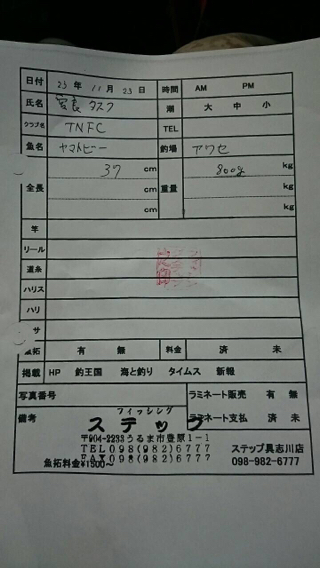 日付 23年 11月 23日 時間 AM PM
氏名 宮良 タスク 潮 大 中 小
クラブ名 TNFC TEL
魚名 ヤマトビー 釣場 アワセ
全長 37 cm 重量 800g kg
cm kg
cm kg
竿
リール
道糸
ハリス
ハリ
サ
魚拓 有 無 料金 済 未
掲載 HP 釣王国 海と釣り タイムス 新報
写真番号 ラミネート販売 有 無
備考 ラミネート支払 済 未
フィッシング
ステップ
〒904-2233うるま市豊原1-1
TEL098(982)6777 ステップ具志川店
FAX098(982)6777 098-982-6777
魚拓料金¥1500~